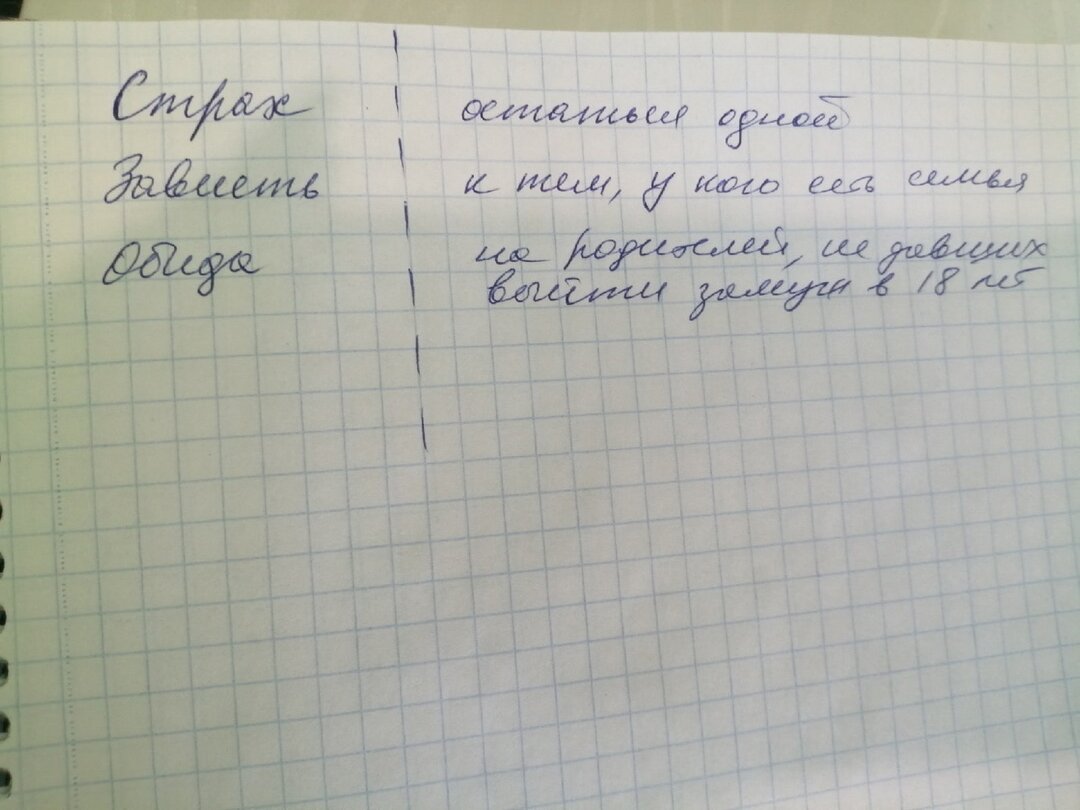 Страх остаться одной
Зависть к тем, у кого есть семья
Обида на родителей, не давших
выйти замуж в 18 лет